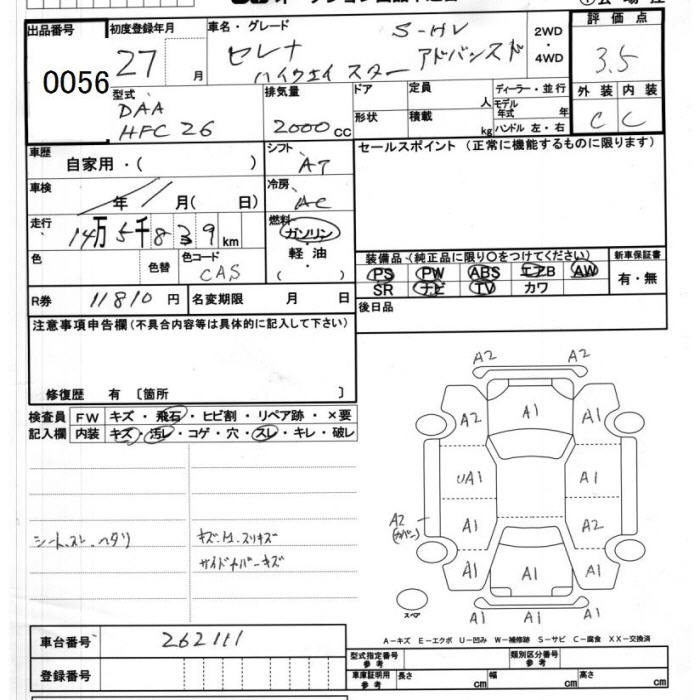 出品番号 初度登録年月 車名・グレード 評価点
0056 27 月 セレナ S-HV
ハイウェイスター アドバンスド
2WD
・
4WD
3.5
型式 排気量 ドア 定員 人 ディーラー・並行
外装 内装
DAA
HFC26 2000 cc 形状 積載 kg
モデル年式 年
ハンドル 左・右
C C
車歴 自家用・( ) シフト AT
セールスポイント (正常に機能するものに限ります)
車検 年 月( 日) 冷房 AC
走行 14万5千839km 燃料 ガソリン
軽油
( )
色 色替 色コード CAS
装備品 (純正品に限り〇をつけてください) 新車保証書
PS PW ABS エアB AW 有・無
SR ナビ TV カワ
R券 11810円 名変期限 月 日
後日品
注意事項申告欄(不具合内容等は具体的に記入して下さい)
修復歴 有 〔箇所 〕
検査員 FW キズ・飛石・ヒビ割・リペア跡・×要
記入欄 内装 キズ・汚レ・コゲ・穴・スレ・キレ・破レ
A2 A2
A2 A1 A1
UA1 A1
A2 A1 A2
(カバー)
A1 A1 A1
スペア
A1 A1 A1
A-キズ E-エクボ U-凹み W-補修跡 S-サビ C-腐食 XX-交換済
車台番号 262111
登録番号
型式指定番号 参考 類別区分番号 参考
車庫証明用 参考 長さ cm 幅 cm 高さ cm